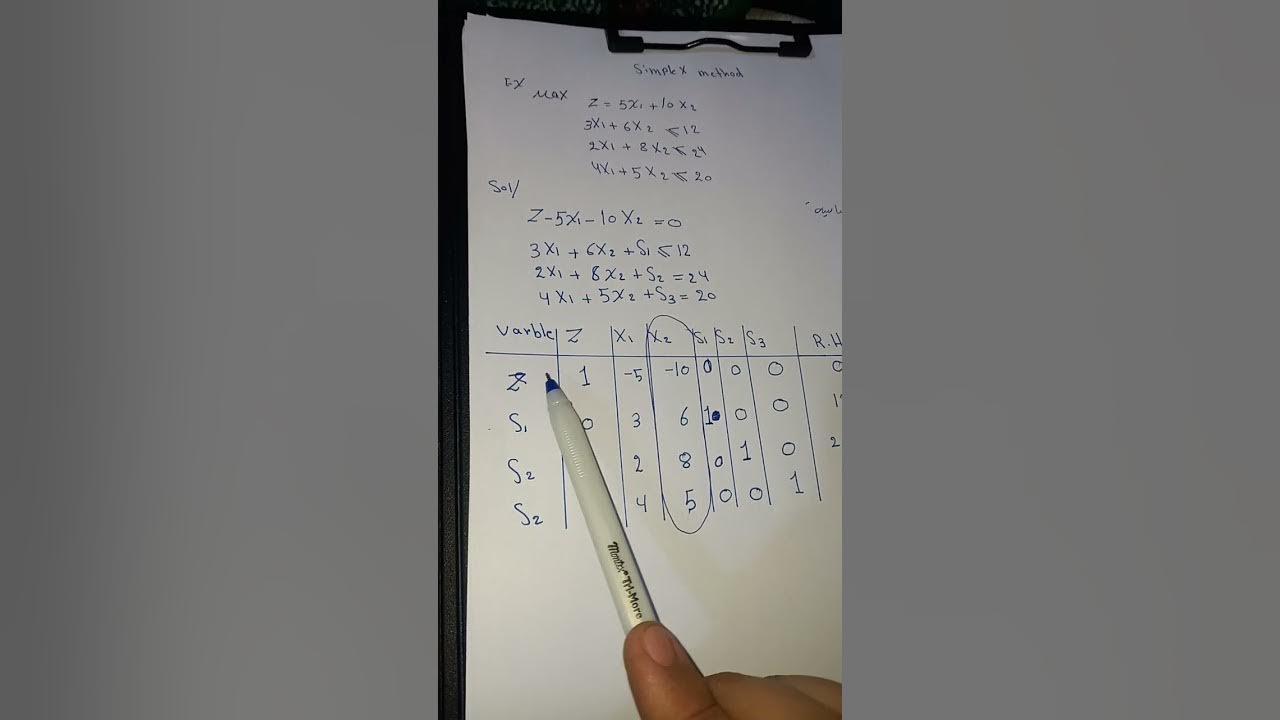 Simplex method
EX Max Z = 5X₁ + 10X₂
3X₁ + 6X₂ ≤ 12
2X₁ + 8X₂ ≤ 24
4X₁ + 5X₂ ≤ 20
Sol/
Z - 5X₁ - 10X₂ = 0
3X₁ + 6X₂ + S₁ ≤ 12
2X₁ + 8X₂ + S₂ = 24
4X₁ + 5X₂ + S₃ = 20
Varble Z X₁ X₂ S₁ S₂ S₃ R.H
Z 1 -5 -10 0 0 0 0
S₁ 0 3 6 1 0 0 1
S₂ 2 8 0 1 0 2
S₂ 4 5 0 0 1
Montex Tri-More